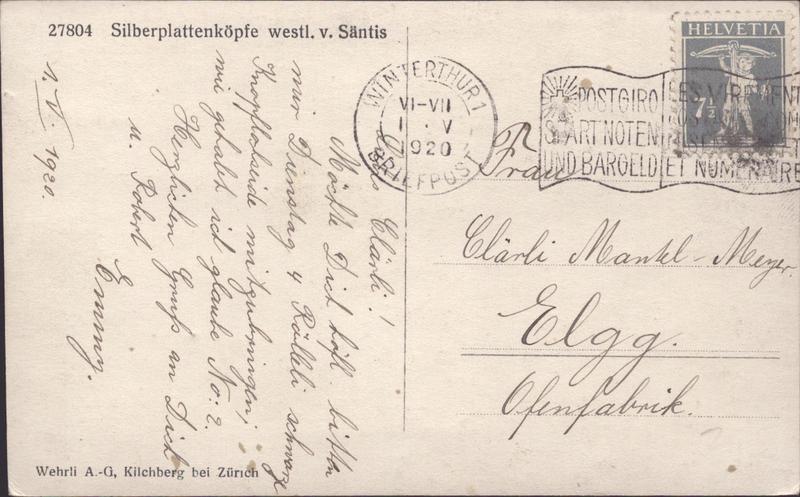 27804 Silberplattenköpfe westl. v. Säntis
1. V. 1920.
Clärli!
Möchte Dich höfl. bitten
mir Dienstag 4 Rölleli schwarze
Knopflochseide mitzubringen;
wir gehabt ich glaube No: 2.
Herzlichen Gruss an Dich
u. Robert
Emmy.
Wehrli A.-G, Kilchberg bei Zürich
WINTERTHUR 1
VI-VII
1 . V
1920
BRIEFPOST
POSTGIRO
SPART NOTEN
UND BARGELD
LES VIREMENT
ET NUMERAIRE
HELVETIA
7½
Frau
Clärli Mantel-Meyer.
Elgg.
Ofenfabrik.